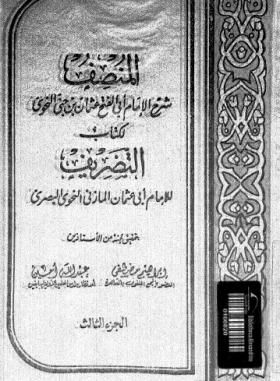 المنصف
شرح الإمام أبي الفتح عثمان بن جني النحوي
لكتاب
التصريف
للإمام أبي عثمان المازني النحوي البصري
بتحقيق لجنة من الأستاذين
إبراهيم مصطفى عبد الله أمين
الجزء الثالث
Bibliotheca Alexandrina